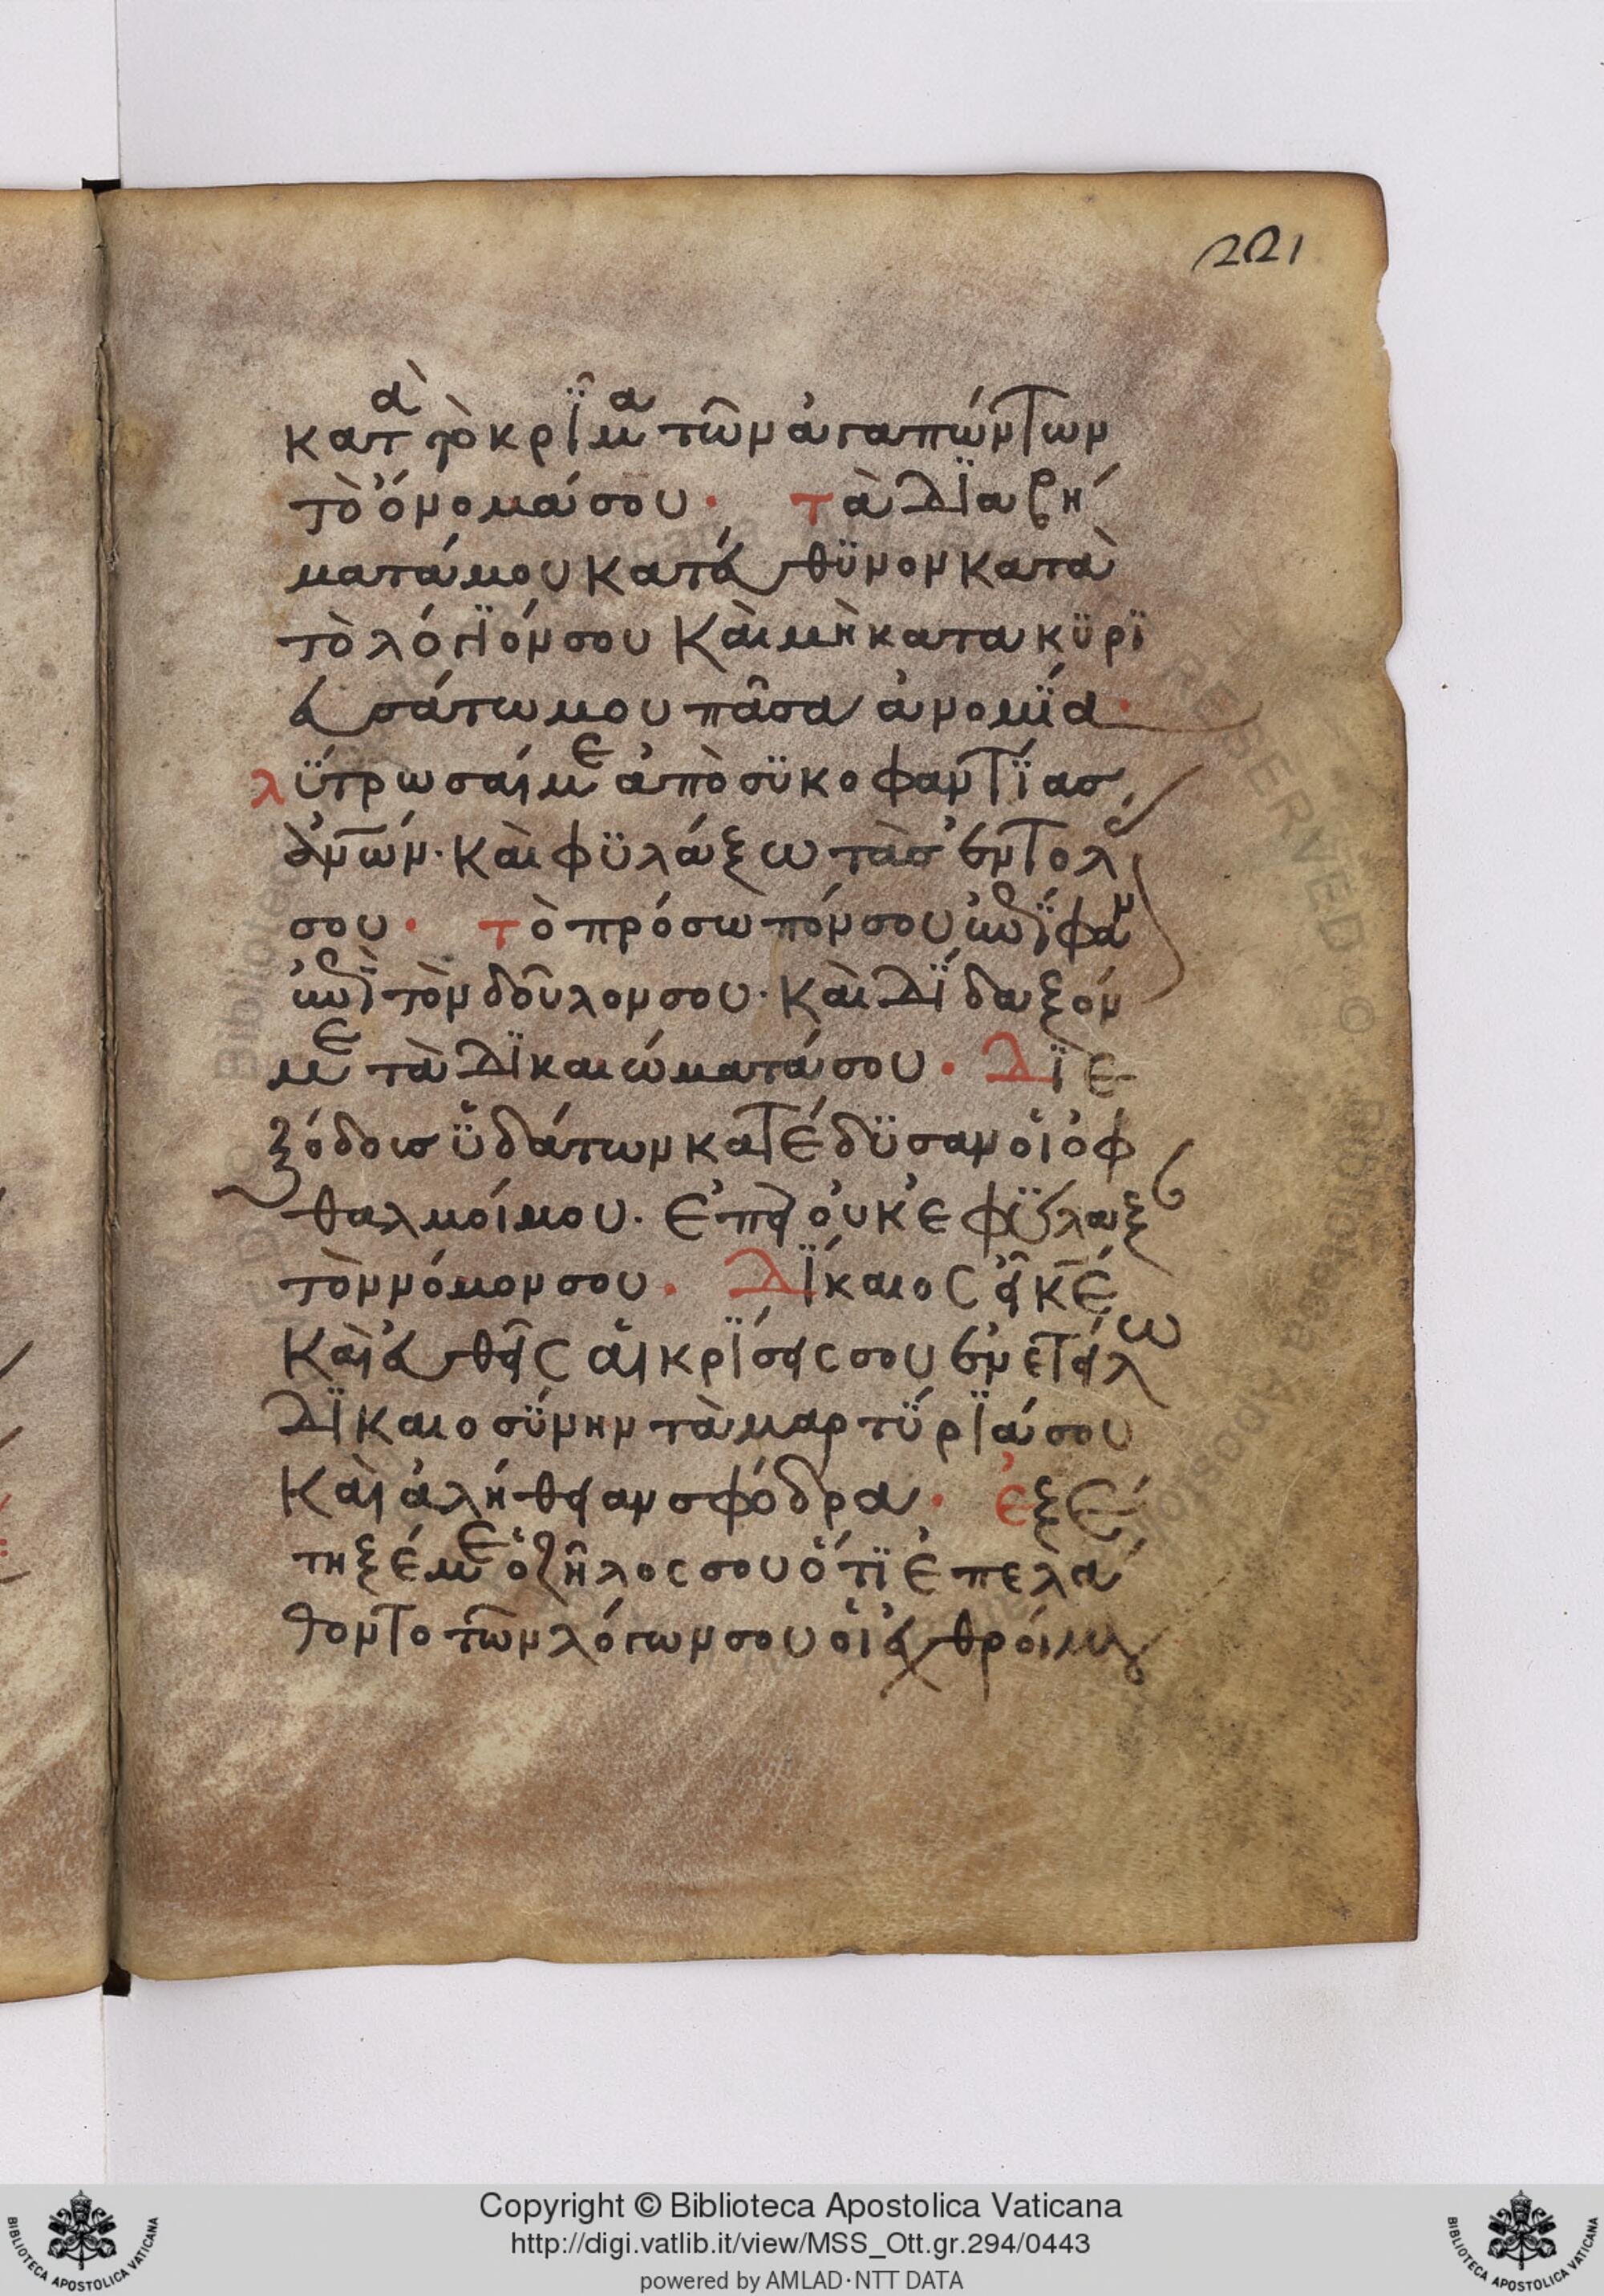 221
κατὰ τὸ κρῖμα τῶν ἀγαπώντων
τὸ ὄνομά σου· τὰ διαβή
ματά μου κατεύθϋνον κατὰ
τὸ λόγϊόν σου καὶ μὴ κατακϋρϊ
ευσάτω μου πᾶσα ἀνομϊα·
λϋτρωσαί με ἀπὸ σϋκοφαντϊας
ἀν̅ω̅ν· καὶ φϋλάξω τὰς ἐντολ
σου· τὸ πρόσωπόν σου ἐπΐφαν
ἐπῒ τὸν δοῦλον σου· καὶ δΐδαξόν
με τὰ δϊκαιώματά σου· δϊε
ξόδοις ϋδάτων κατέδϋσαν οἱ ὀφ
θαλμοί μου· ἐπεὶ οὐκ ἐφϋλαξ
τὸν νόμον σου· δΐκαιος εἶ κ̅ε̅
καὶ εὐθεῖς αἱ κρΐσεις σου ἐνετείλω
δϊκαιοσϋνην τὰ μαρτϋρϊά σου
καὶ ἀλήθειαν σφόδρα· ἐξέ
τηξέ με ὁ ζῆλος σου ὅτϊ ἐπελά
θοντο τῶν λόγων σου οἱ ἐχθροί μου
Copyright © Biblioteca Apostolica Vaticana
http://digi.vatlib.it/view/MSS_Ott.gr.294/0443
powered by AMLAD·NTT DATA
BIBLIOTECA APOSTOLICA VATICANA
BIBLIOTECA APOSTOLICA VATICANA